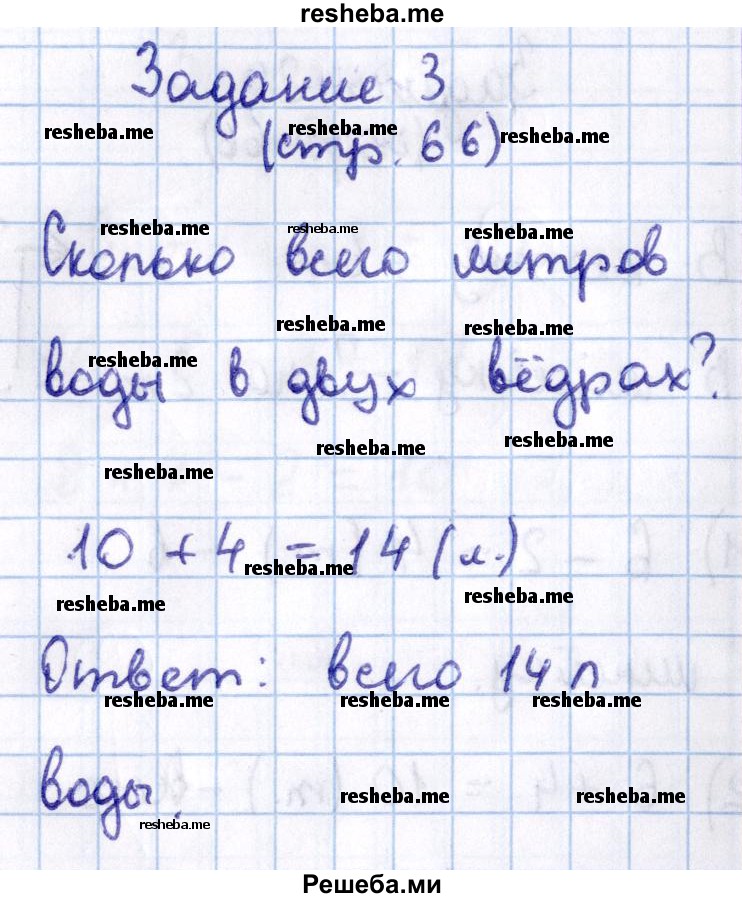 resheba.me
Задание 3
resheba.me resheba.me resheba.me
(стр. 66)
resheba.me resheba.me resheba.me
Сколько всего литров
resheba.me resheba.me
resheba.me
воды в двух вёдрах?
resheba.me resheba.me
resheba.me
10 + 4 = 14 (л.)
resheba.me
resheba.me resheba.me
Ответ: всего 14 л
resheba.me resheba.me resheba.me
воды.
resheba.me resheba.me
resheba.me
Решеба.ми